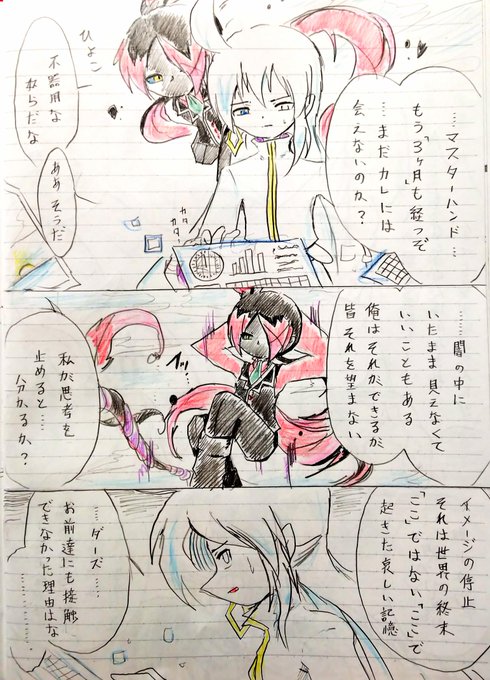 ……マスターハンド…
もう「3ヶ月」も経つぞ
…まだカレには
会えないのか？
ひょこ
不器用な
奴らだな
ああそうだ
カタ
カタ
………闇の中に
いたまま見えなくて
いいこともある
俺はそれができるが
皆それを望まない
イッ…
私が思考を
止めると…
分かるか？
イメージの停止
それは世界の終末
「ここ」ではない「ここ」で
起きた哀しい記憶
……ダーズ……
お前達にも接触
できなかった理由はな